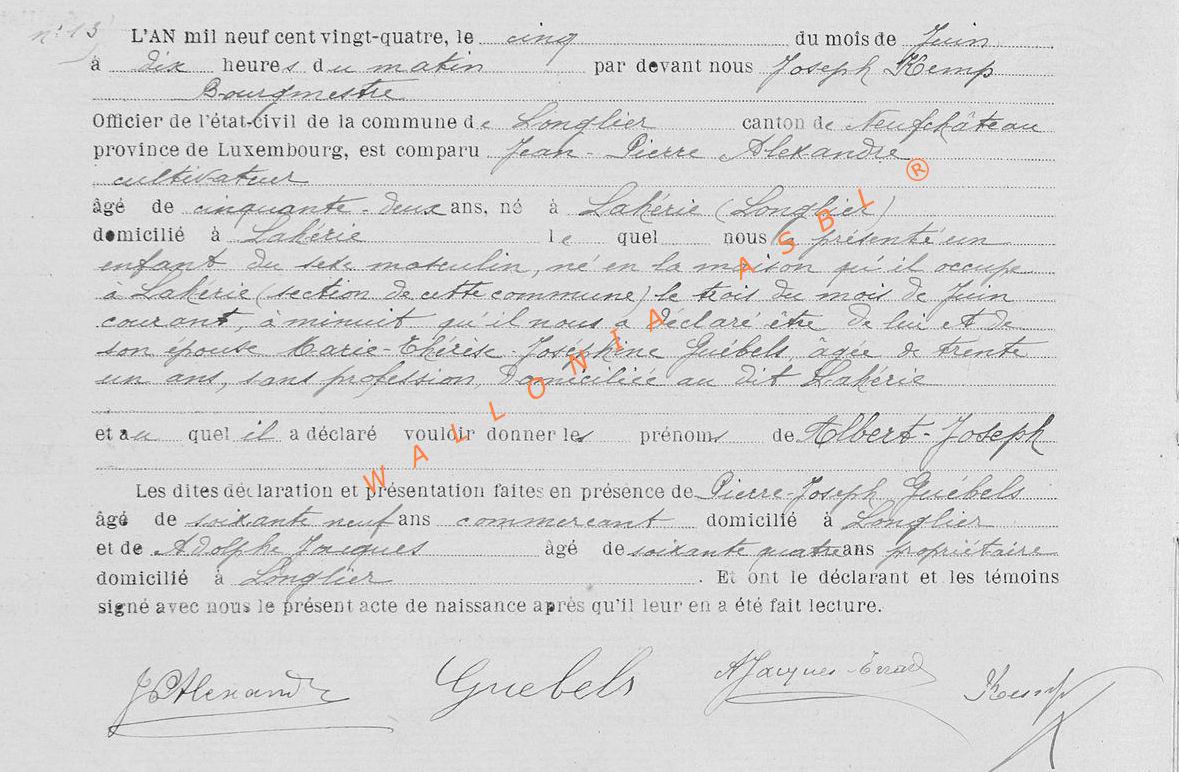 n° 13
L'AN mil neuf cent vingt-quatre, le cinq du mois de Juin
à dix heures du matin par devant nous Joseph Kemp
Bourgmestre
Officier de l'état-civil de la commune de Longlier canton de Neufchâteau
province de Luxembourg, est comparu Jean-Pierre Alexandre
cultivateur
âgé de cinquante-deux ans, né à Lahérie (Longlier)
domicilié à Lahérie lequel nous a présenté un
enfant du sexe masculin, né en la maison qu'il occupe
à Lahérie (section de cette commune) le trois du mois de Juin
courant, à minuit qu'il nous a déclaré être de lui et de
son épouse Marie-Thérèse-Joséphine Guébels, âgée de trente
un ans, sans profession, domiciliée au dit Lahérie
et au quel il a déclaré vouloir donner les prénoms de Albert-Joseph
Les dites déclaration et présentation faites en présence de Pierre-Joseph Guébels
âgé de soixante neuf ans commercant domicilié à Longlier
et de Adolphe Jacques âgé de soixante quatre ans propriétaire
domicilié à Longlier. Et ont le déclarant et les témoins
signé avec nous le présent acte de naissance après qu'il leur en a été fait lecture.
JPAlexandre Guebels AJacques- Kemp
WALLONIA ASBL ®